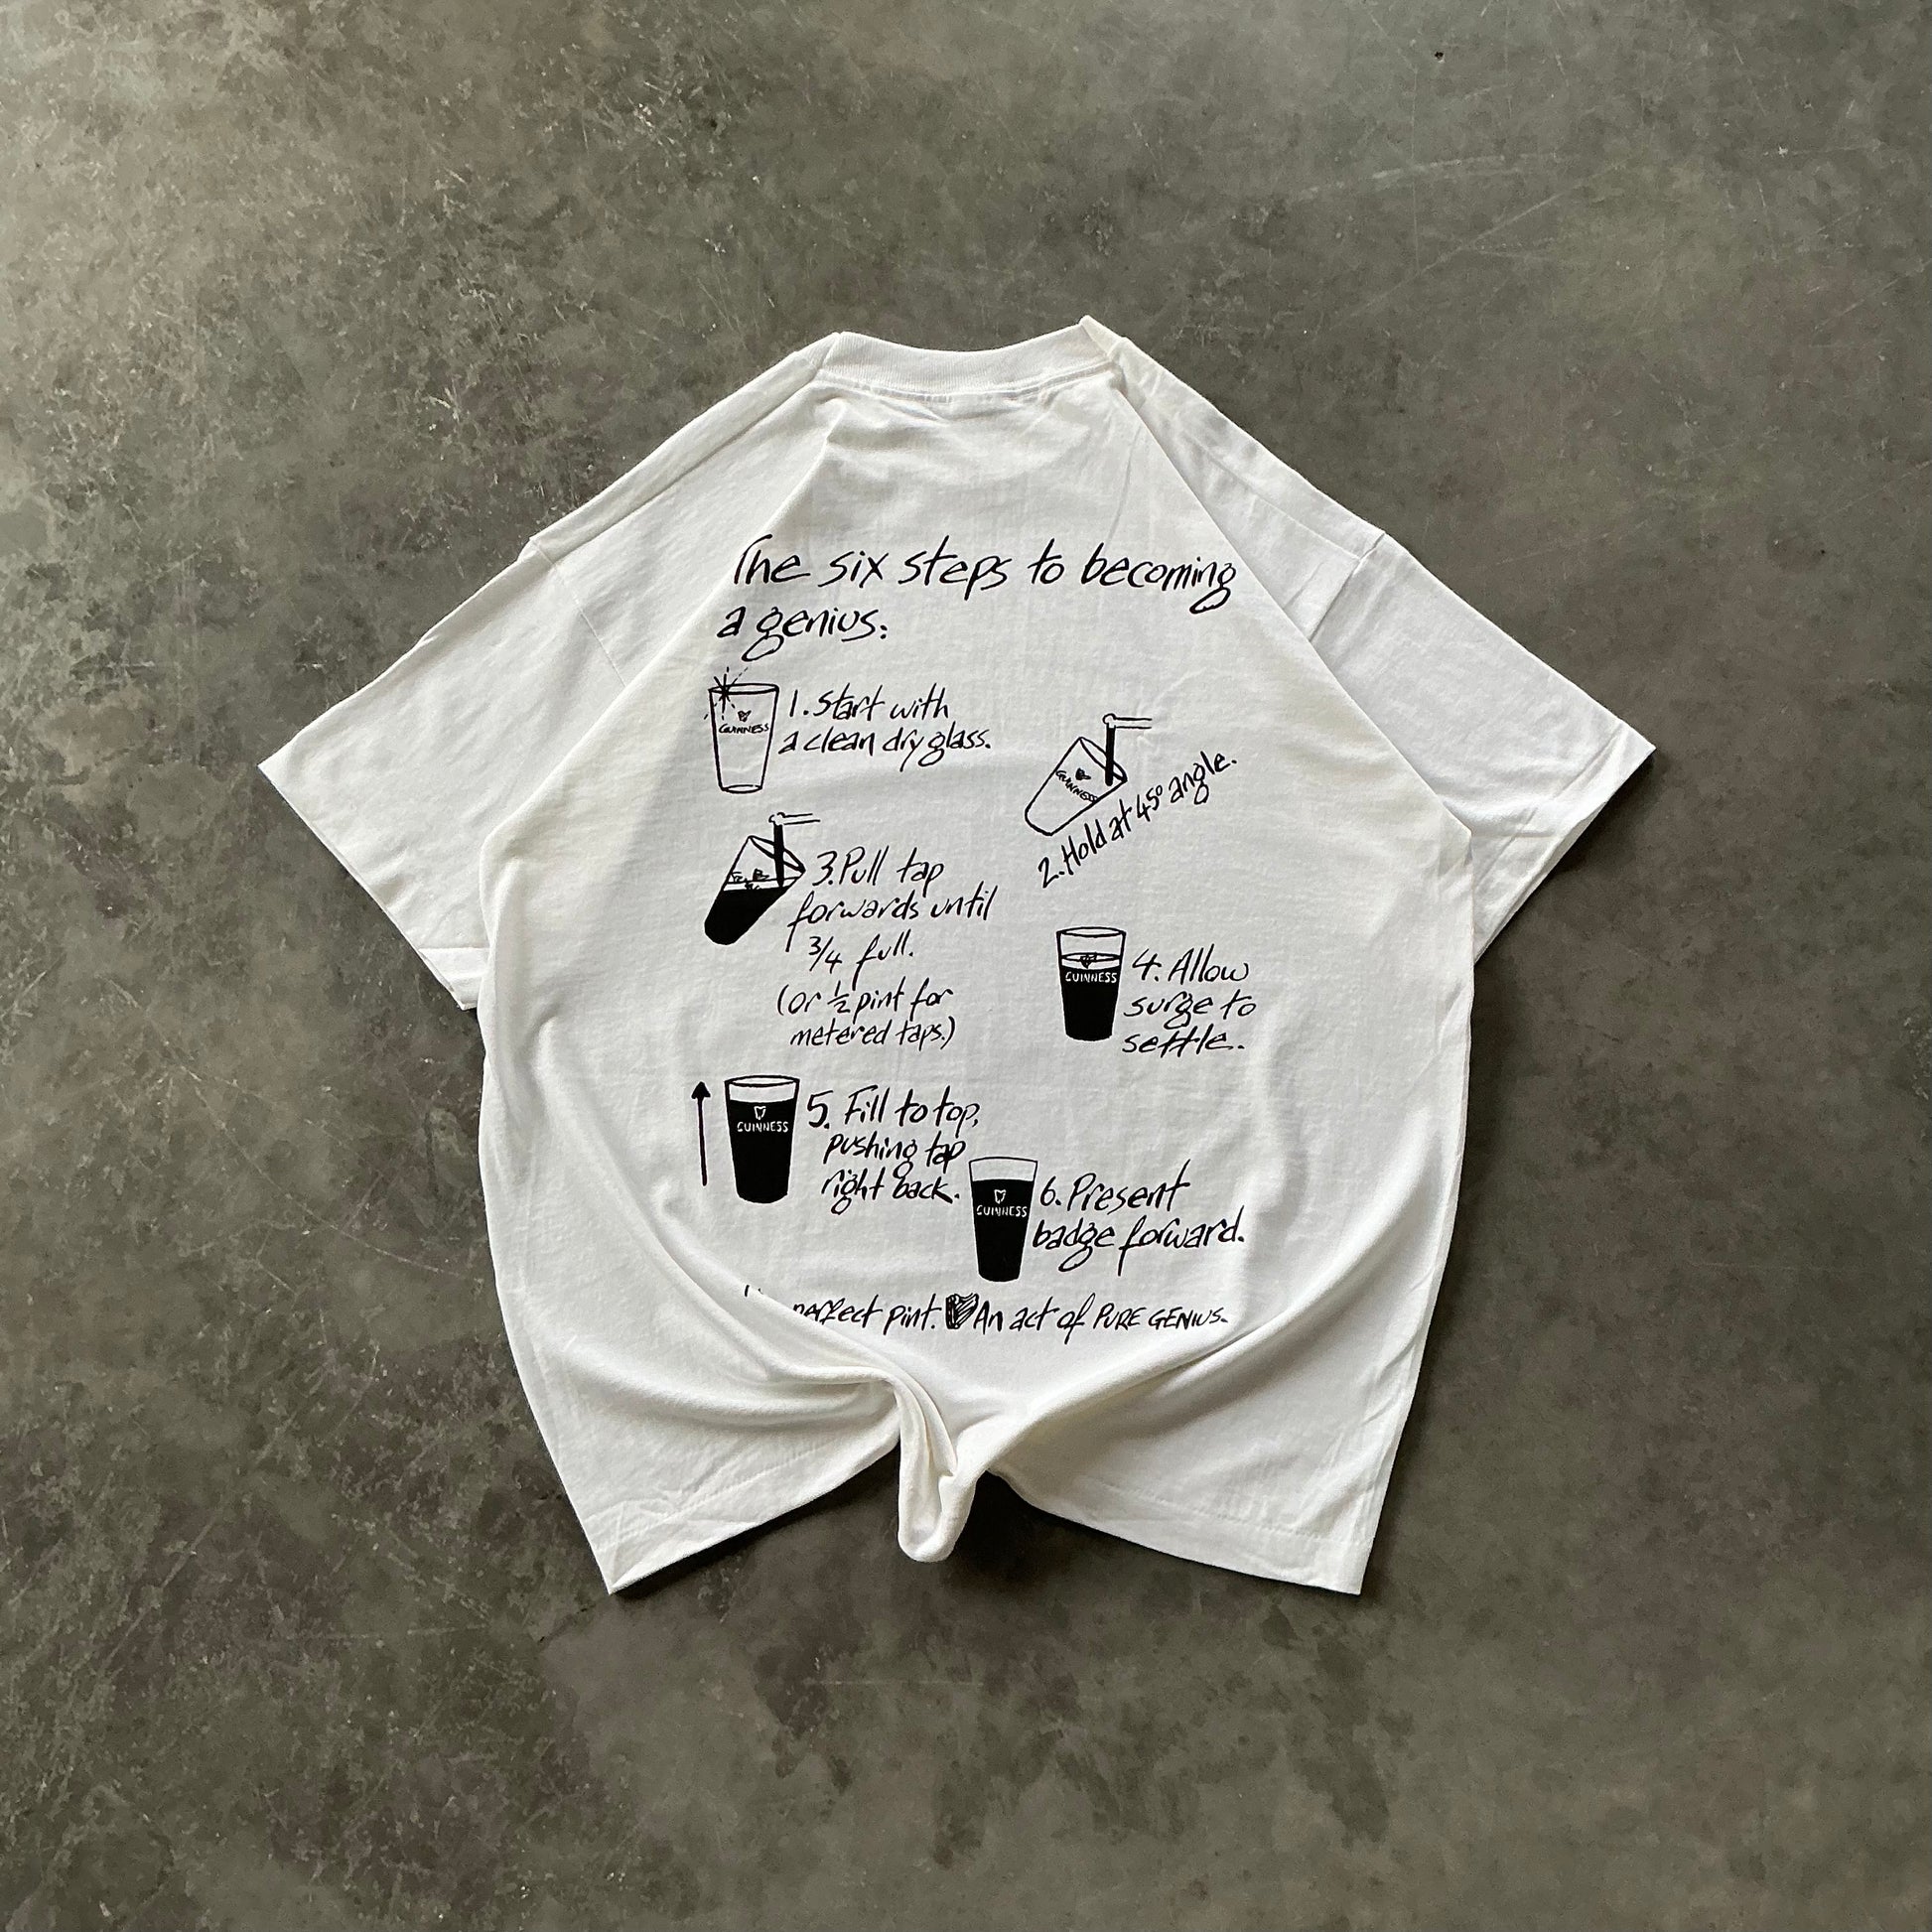 The six steps to becoming
a genius:
GUINNESS
1. Start with
a clean dry glass.
GUINNESS
2. Hold at 45° angle.
3. Pull tap
forwards until
3/4 full.
(or ½ pint for
metered taps.)
GUINNESS
4. Allow
surge to
settle.
GUINNESS
5. Fill to top,
pushing tap
right back.
GUINNESS
6. Present
badge forward.
perfect pint. An act of PURE GENIUS.